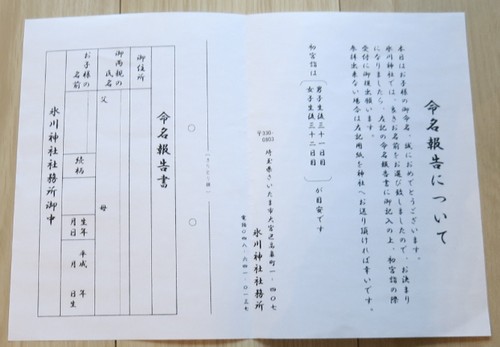 命名報告について
本日はお子様の御命名、誠におめでとうございます。
氷川神社では、良きお名前をお選び致しましたので、お決まり
になりましたら、左記の命名報告書に御記入の上、初宮詣の際
受付に御提出願います。
参拝出来ない場合は左記用紙を神社へお送り頂ければ幸いです。
初宮詣は
男子生後三十一日目
女子生後三十二日目
が目安です
〒330-0803
埼玉県さいたま市大宮区高鼻町一-四〇七
氷川神社社務所
電話〇四八-六四一-〇一三七
(きりとり線)
命名報告書
御住所
御両親の氏名
父
母
お子様の名前
続柄
生年月日
平成 年 月 日生
氷川神社社務所御中